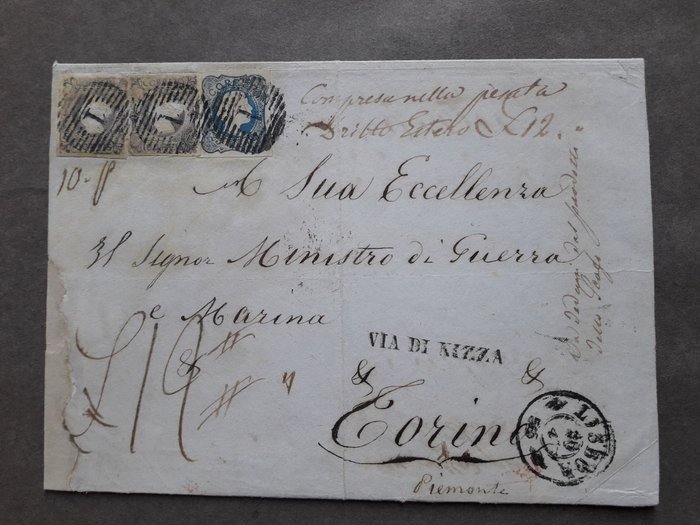 CORREIO
1 1 1
Compresa nella pesata
Dritto Estero £12.
10
A Sua Eccellenza
Il Signor Ministro di Guerra
e Marina
&
VIA DI NIZZA
& &
Torino
Piemonte
LISBOA